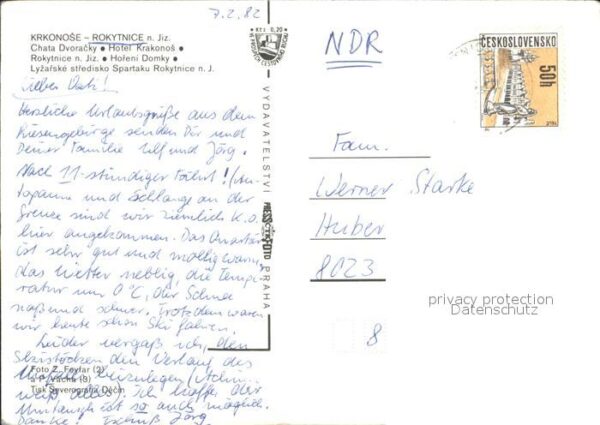 7.2.82
KRKONOŠE – ROKYTNICE n. Jiz.
Chata Dvoračky • Hotel Krakonoš •
Rokytnice n. Jiz. • Hoření Domky •
Lyžařské středisko Spartaku Rokytnice n. J.
Kčs 0,20
Lieber
Herzliche Urlaubsgrüße aus dem
Riesengebirge senden Dir und
Deiner Familie Ulf und Jörg.
Nach 11-stündiger Fahrt! (Au-
topanne und Schlange an der
Grenze sind wir ziemlich k.o.
hier angekommen. Das Quartier
ist sehr gut und mollig warm,
das Wetter neblig, die Tempe-
ratur um 0°C, der Schnee
naß und schwer. Trotzdem waren
wir heute schon Ski fahren.
Leider vergaß ich, den
den Verlag des
einzulegen
weiß alles). Ich hoffe der
Umtausch ist so auch möglich.
Danke! Jörg
Foto Z. Feyfar (2)
a P. Vácha (3)
Tisk Severografia Děčín
VYDAVATELSTVÍ PRESSFOTO PRAHA
NDR
ČESKOSLOVENSKO
50h
Fam.
Werner Starke
Huber
8023
8
privacy protection
Datenschutz